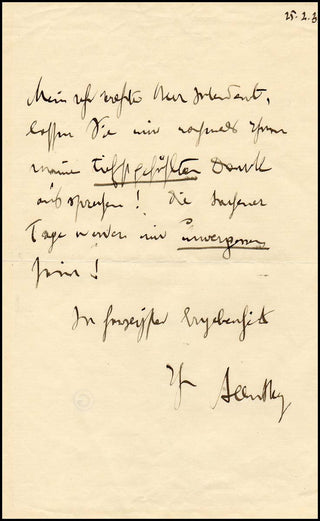 25. 2. 3
Mein sehr verehrter Herr Intendant,
lassen Sie mir nochmals Ihnen
meine tiefstgefühlten Dank
aussprechen! Die
Tage werden mir unvergessen
sein!
In herzlichster Ergebenheit
Ihr